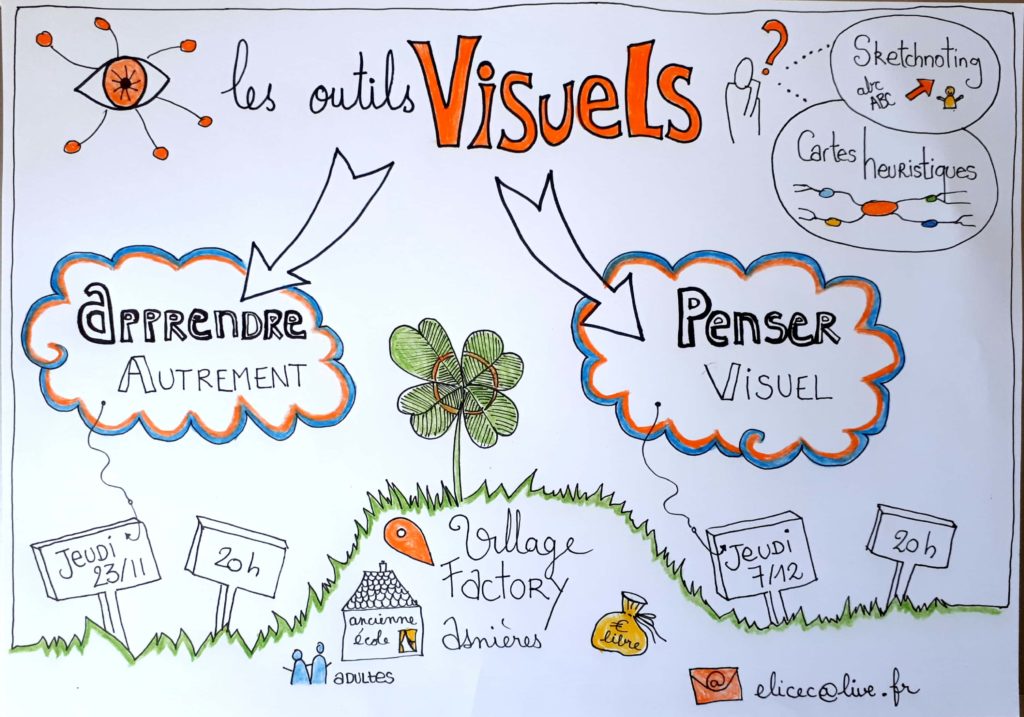 les outils Visuels
?
Sketchnoting
abc
ABC
Cartes heuristiques
Apprendre
Autrement
Penser
Visuel
Jeudi
23/11
20h
Village
Factory
Asnières
ancienne
école
adultes
€
libre
Jeudi
7/12
20h
@ elicec@live.fr